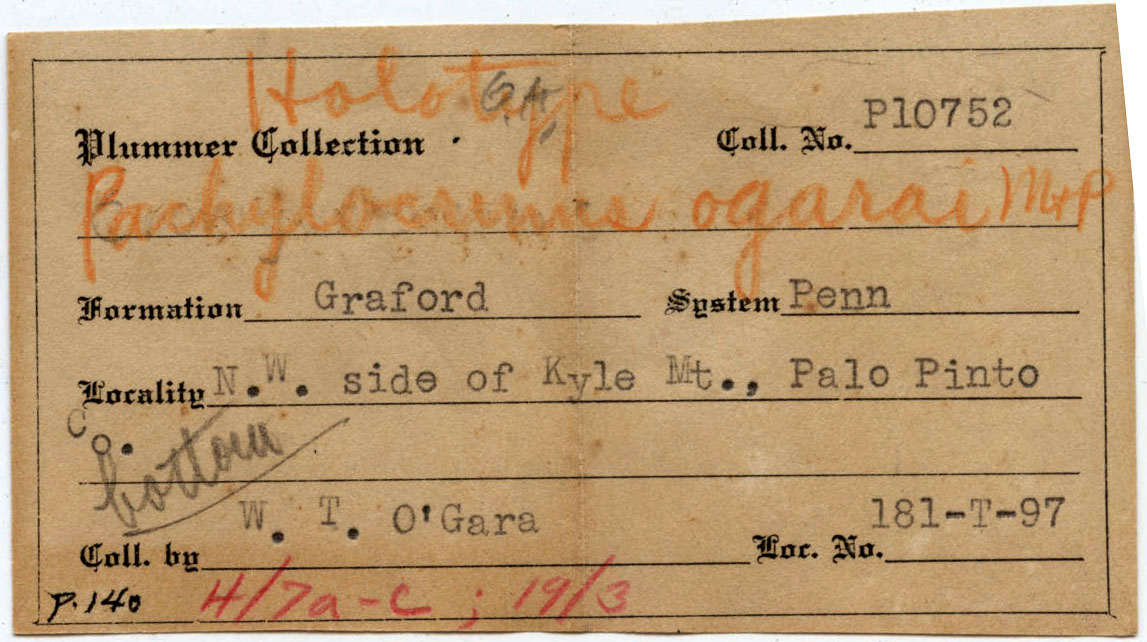 Holotype
Plummer Collection Coll. No. P10752
Pachylocrinus ogarai M+P
Formation Graford System Penn
Locality N.W. side of Kyle Mt., Palo Pinto
Co.
bottom
Coll. by W. T. O'Gara Loc. No. 181-T-97
p.140 4/7a-c ; 19/3